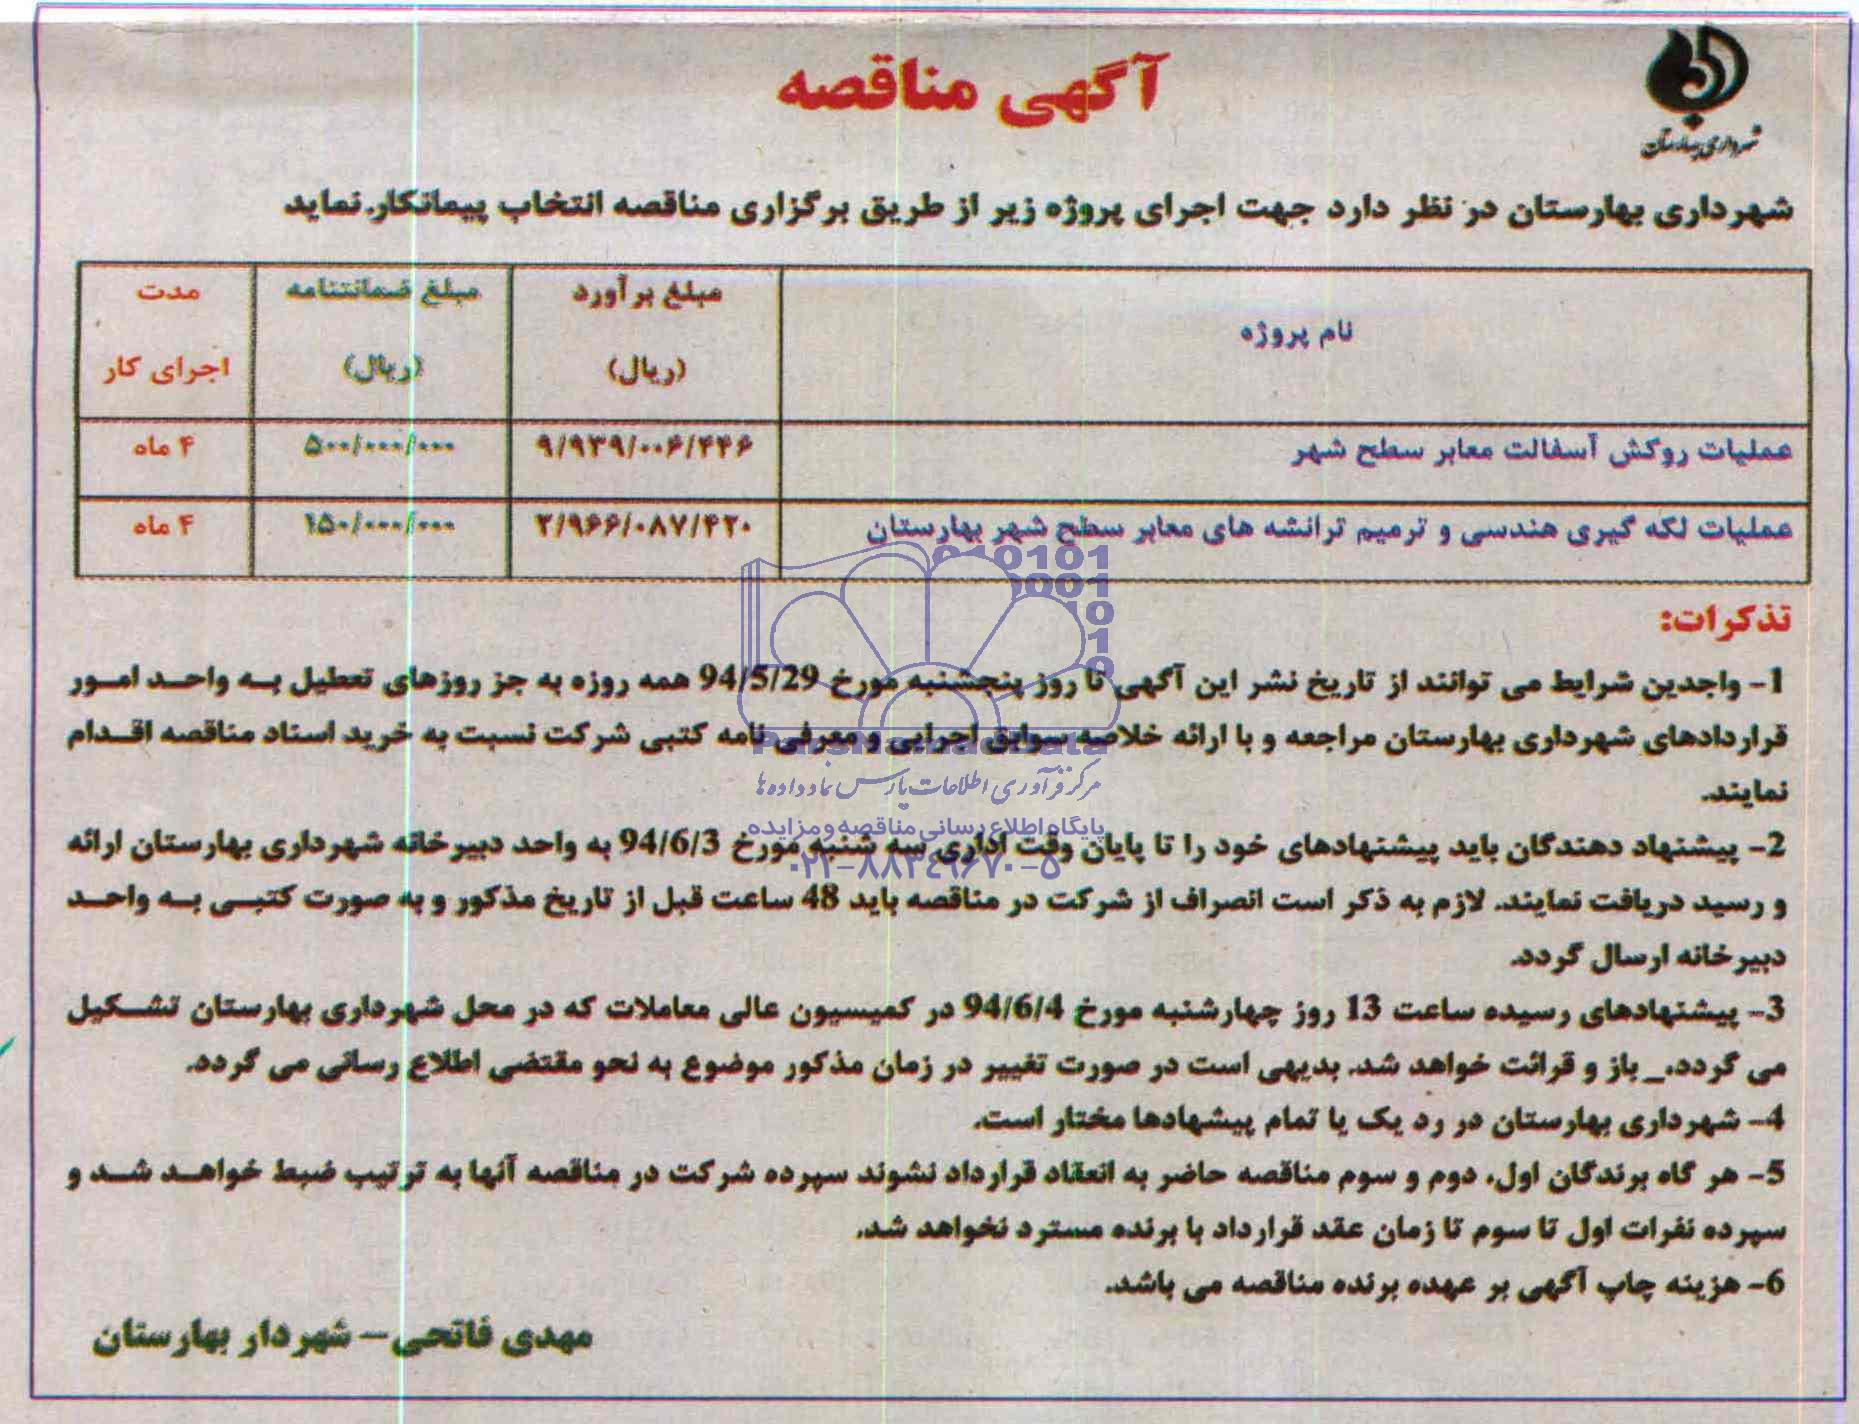 شهرداری بهارستان
آگهی مناقصه
شهرداری بهارستان در نظر دارد جهت اجرای پروژه زیر از طریق برگزاری مناقصه انتخاب پیمانکار نماید
نام پروژه
مبلغ برآورد (ریال)
مبلغ ضمانتنامه (ریال)
مدت اجرای کار
عملیات روکش آسفالت معابر سطح شهر
۹/۹۳۹/۰۰۶/۴۴۶
۵۰۰/۰۰۰/۰۰۰
۴ ماه
عملیات لکه گیری هندسی و ترمیم ترانشه های معابر سطح شهر بهارستان
۲/۹۶۶/۰۸۷/۴۲۰
۱۵۰/۰۰۰/۰۰۰
۴ ماه
010101
0001
10
1
0
تذکرات:
1- واجدین شرایط می توانند از تاریخ نشر این آگهی تا روز پنجشنبه مورخ 94/5/29 همه روزه به جز روزهای تعطیل به واحد امور
قراردادهای شهرداری بهارستان مراجعه و با ارائه خلاصه سوابق اجرایی و معرفی نامه کتبی شرکت نسبت به خرید اسناد مناقصه اقدام
نمایند.
مرکز فرآوری اطلاعات پارس نماد داده ها
پایگاه اطلاع رسانی مناقصه و مزایده
2- پیشنهاد دهندگان باید پیشنهادهای خود را تا پایان وقت اداری سه شنبه مورخ 94/6/3 به واحد دبیرخانه شهرداری بهارستان ارائه
۰۲۱-۸۸۳۴۹۶۷۰-۵
و رسید دریافت نمایند. لازم به ذکر است انصراف از شرکت در مناقصه باید 48 ساعت قبل از تاریخ مذکور و به صورت کتبی به واحد
دبیرخانه ارسال گردد.
3- پیشنهادهای رسیده ساعت 13 روز چهارشنبه مورخ 94/6/4 در کمیسیون عالی معاملات که در محل شهرداری بهارستان تشکیل
می گردد._ باز و قرائت خواهد شد. بدیهی است در صورت تغییر در زمان مذکور موضوع به نحو مقتضی اطلاع رسانی می گردد.
4- شهرداری بهارستان در رد یک یا تمام پیشهادها مختار است.
5- هر گاه برندگان اول، دوم و سوم مناقصه حاضر به انعقاد قرارداد نشوند سپرده شرکت در مناقصه آنها به ترتیب ضبط خواهد شد و
سپرده نفرات اول تا سوم تا زمان عقد قرارداد با برنده مسترد نخواهد شد.
6- هزینه چاپ آگهی بر عهده برنده مناقصه می باشد.
مهدی فاتحی - شهردار بهارستان